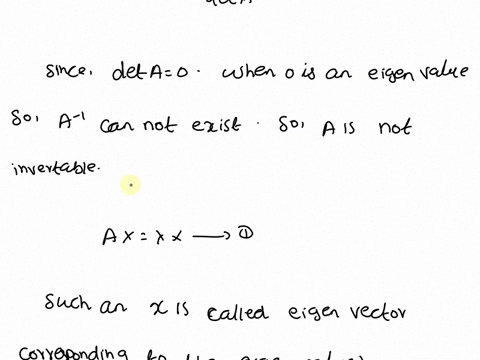 since, det A = 0. when 0 is an eigen value
so, A⁻¹ can not exist. so, A is not
invertable.
A x = λ x ⟶ ①
Such an x is called eigen vector
corresponding to the eigen value